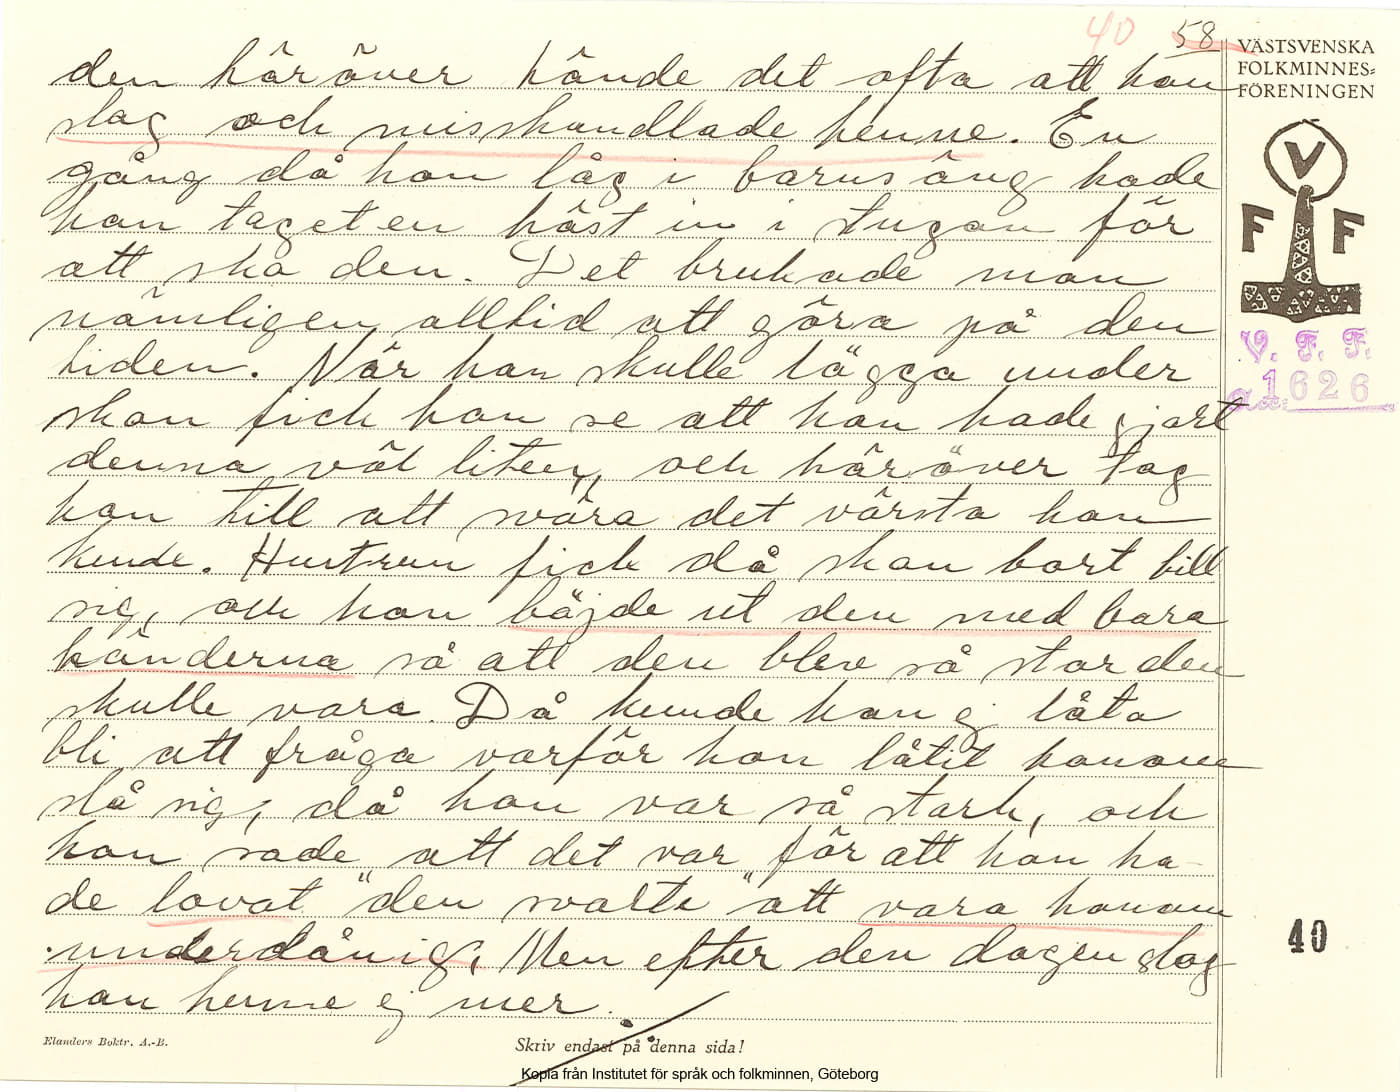 40 58
VÄSTSVENSKA
FOLKMINNES-
FÖRENINGEN
V
F F
V. F. F.
1626
den häröver hände det ofta att han
slag och misshandlade henne. En
gång då hon låg i barnsäng hade
han taget en häst in i stugan för
att sko den. Det brukade man
nämligen alltid att göra på den
tiden. När han skulle lägga under
skon fick hon se att han hade gjort
denna väl liten, och häröver tog
han till att svära det värsta han
kunde. Hustrun fick då skon bort till
sig, och hon böjde ut den med bara
händerna så att den blev så stor den
skulle vara. Då kunde han ej låta
bli att fråga varför hon låtit honom
slå sig, då hon var så stark, och
hon sade att det var för att hon ha-
de lovat "den svarte" att vara honom
underdånig. Men efter den dagen slog
han henne ej mer.
40
Elanders Boktr. A.-B.
Skriv endast på denna sida!
Kopia från Institutet för språk och folkminnen, Göteborg